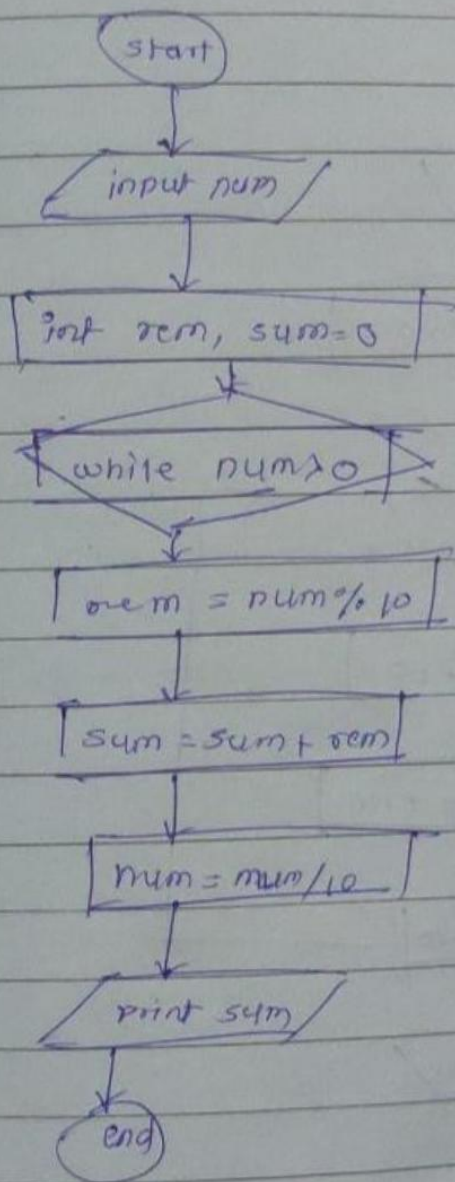 start
input num
int rem, sum=0
while num>0
rem = num%10
sum = sum + rem
num = num/10
print sum
end